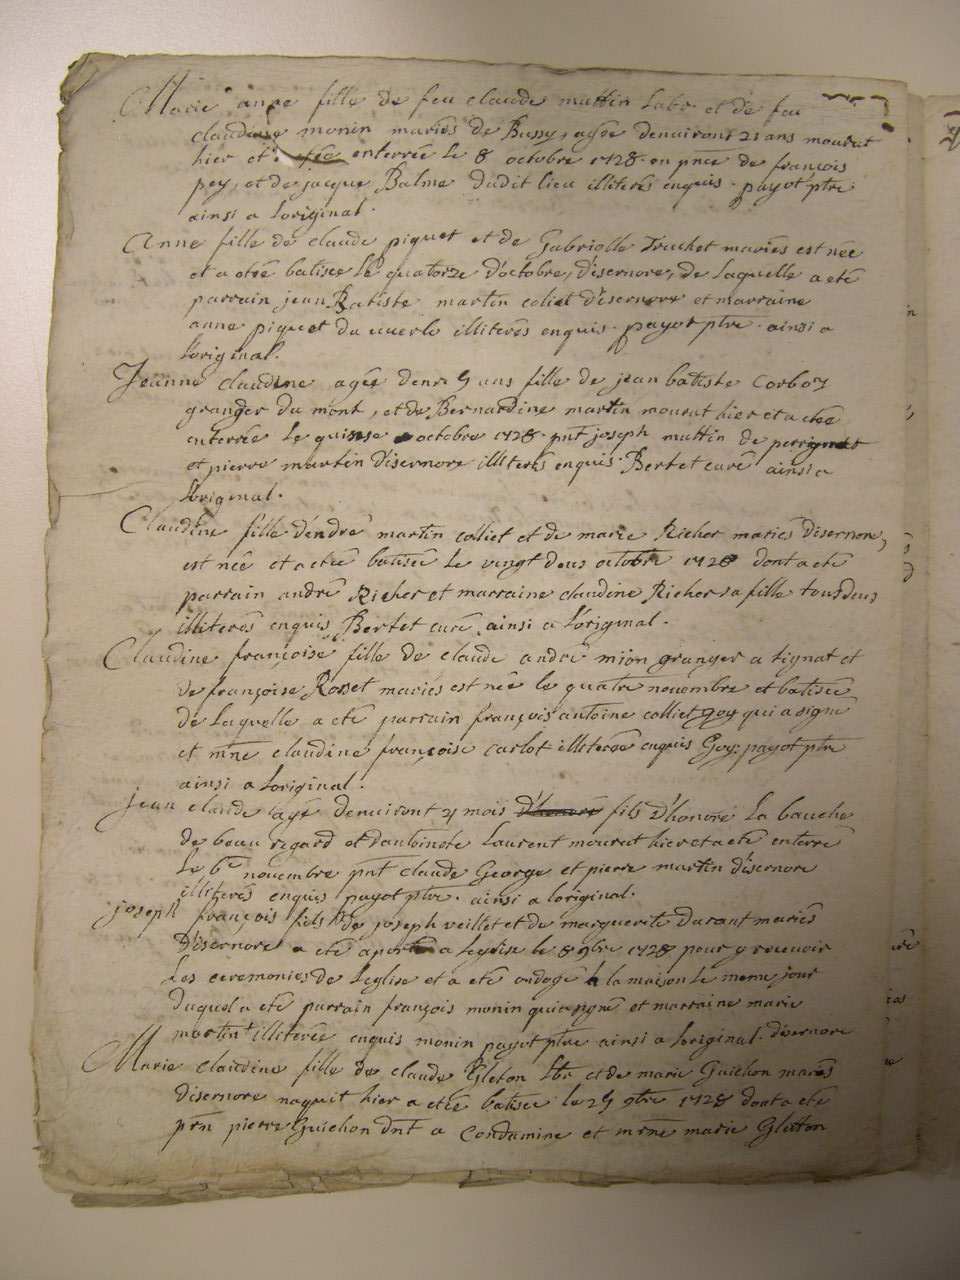 Marie anne fille de feu claude mattin Labr et de feu
claudine monin mariés de Bussy, agée denuiront 21 ans mourut
hier et enterrée le 8 octobre 1728 en pnce de françois
pey, et de jacque Balme dudit lieu illiterés enquis. payot ptre.
ainsi a loriginal.
Anne fille de claude piquet et de Gabrielle Truchet mariés est née
et a etée batisée le quatorze d'octobre, d'isernore, de laquelle a eté
parrain jean Batiste martin coliet d'isernore et marraine
anne piquet du illiterés enquis. payot ptre. ainsi a
loriginal.
Jeanne claudine agée denv 5 ans fille de jean batiste Corboz
granger du mont, et de Bernardine martin mourut hier et a etée
enterrée le quinse octobre 1728. pnt joseph mattin de perrignat
et pierre martin d'isernore illiterés enquis. Bertet curé ainsi a
loriginal.
Claudine fille d'endré martin colliet et de marie Richer mariés d'isernore,
est née et a etée batisée le vingt deus octobre 1728 dont a eté
parrain andré Richer et marraine claudine Richer sa fille tous deus
illiterés enquis Bertet curé ainsi a l'original.
Claudine françoise fille de claude andré mion granger a tignat et
de françoise Rosset mariés est née le quatre novembre et batisée
de laquelle a eté parrain françois antoine colliet goy qui a signé
et mne claudine françoise carlot illiterée enquis Goy. payot ptre
ainsi a loriginal.
jean claude agé denuiront 21 mois d'honoré fils d'honoré la bauche
de beau regard et d'antoinete Laurent mourut hier et a eté enterré
le 6e novembre pnt claude George et pierre martin d'isernore
illiterés enquis payot ptre. ainsi a loriginal.
joseph françois fils de joseph veillet et de marguerite durant mariés
d'isernore a eté aporté a leglise le 8 9bre 1728 pour y recevoir
les ceremonies de leglise et a eté ondogé a la maison le meme jour
duquel a eté parrain françois monin qui a signé et marraine marie
martin illiterée enquis monin payot ptre ainsi a loriginal. d'isernore
Marie claudine fille de claude Gleton Lbr et de marie Guichon mariés
d'isernore naquit hier a etée batisée le 25 9bre 1728 dont a eté
prn pierre Guichon dnt a Condamine et mrne marie Gletton